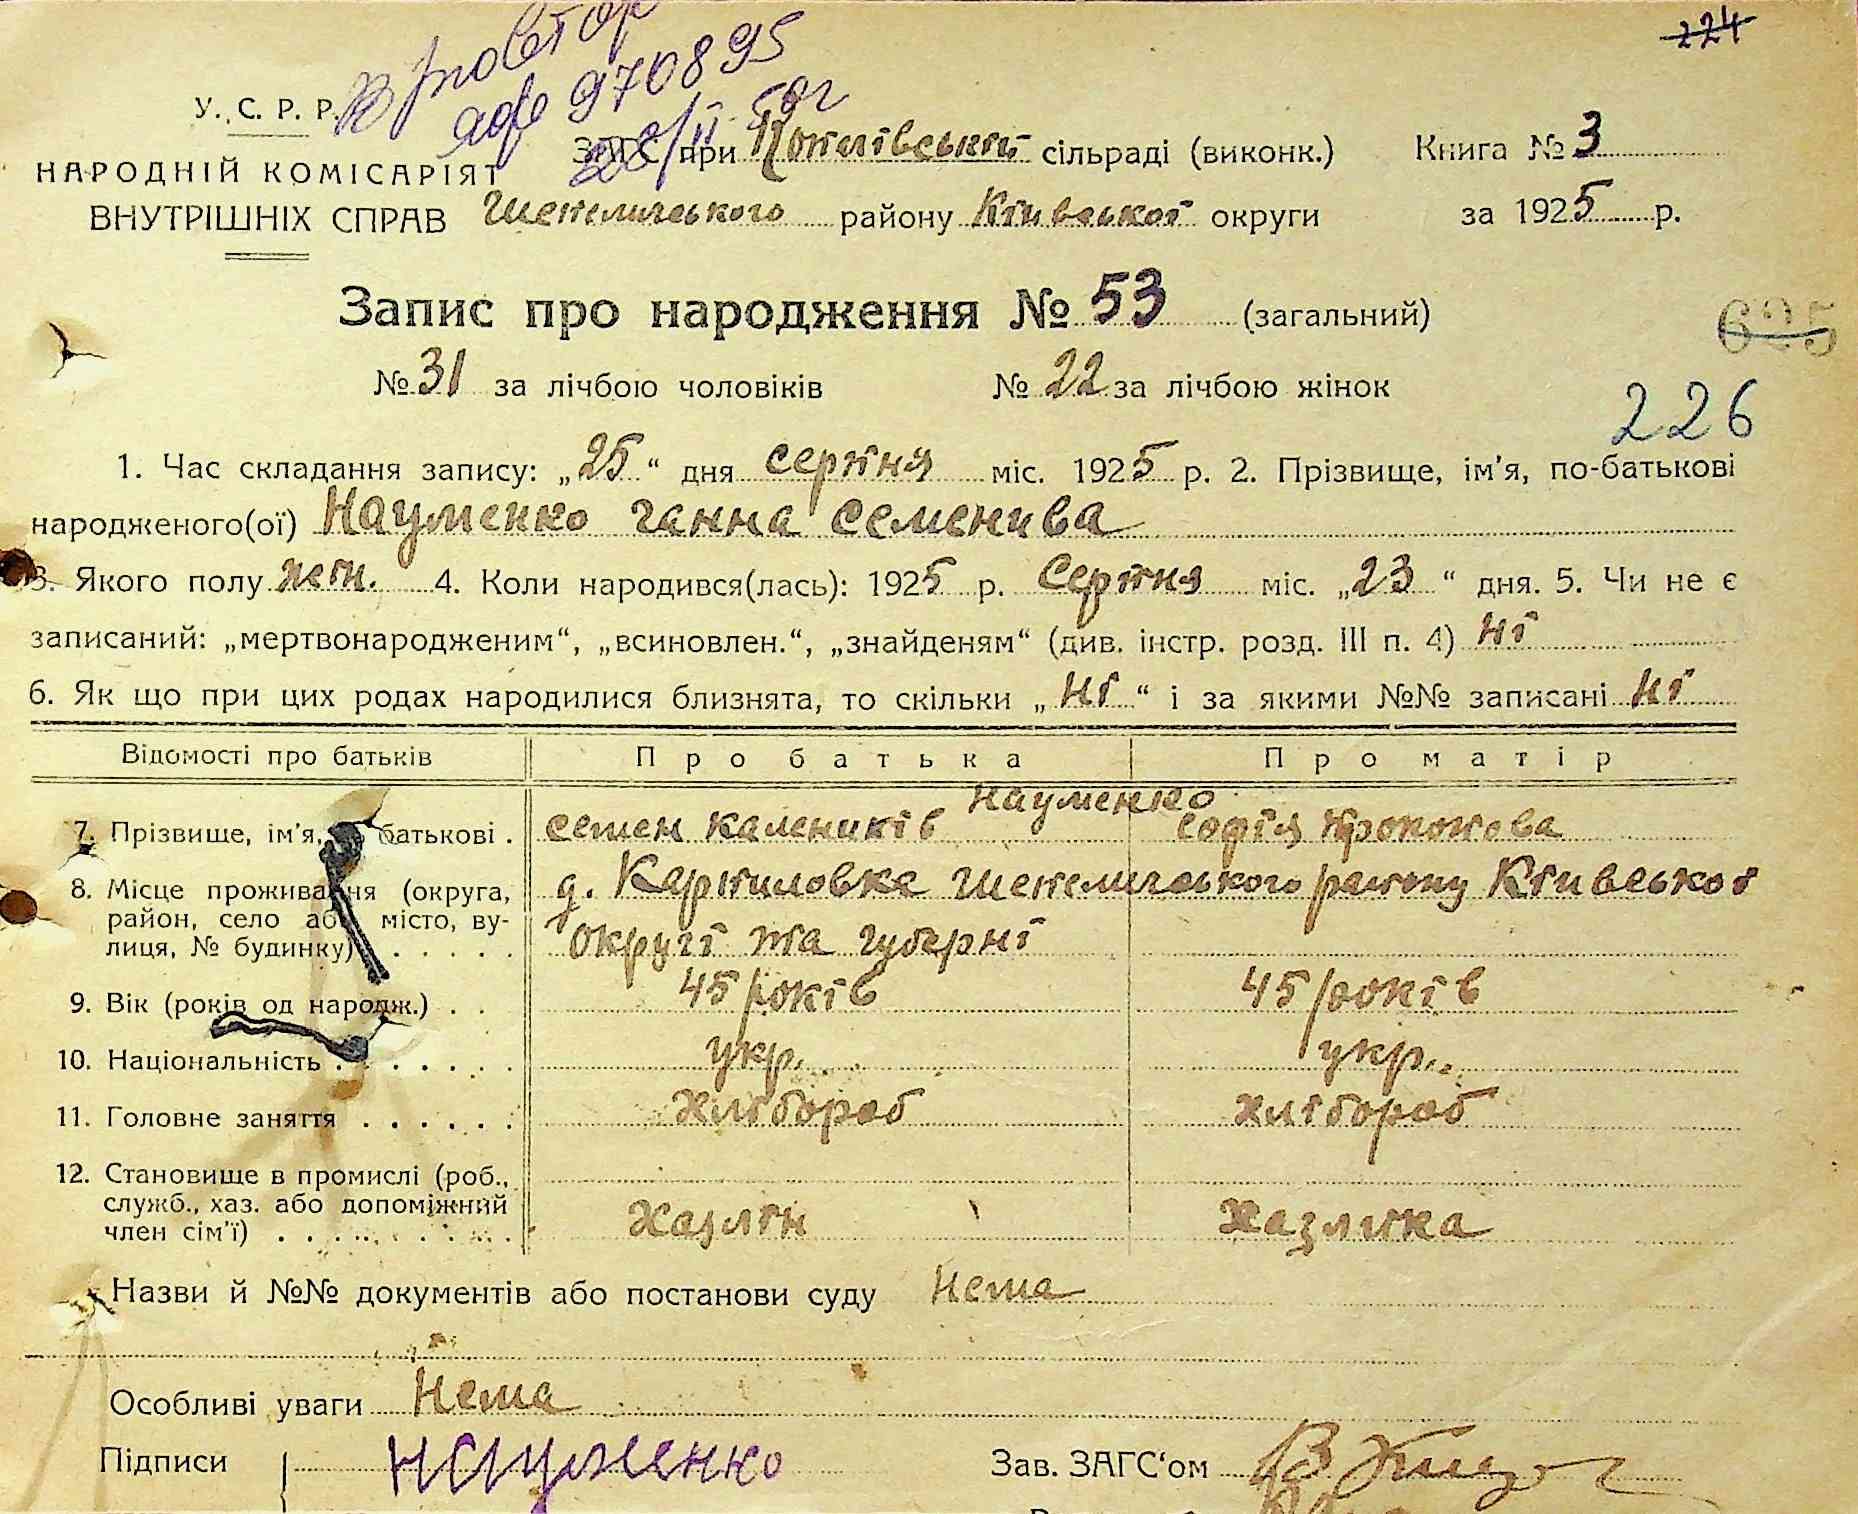 224
В повтор
аф 970895
28/II 50г
У. С. Р. Р.
НАРОДНІЙ КОМІСАРІЯТ
ВНУТРІШНІХ СПРАВ
ЗАГС при сільраді (виконк.) Книга № 3
Шепелицького району Київської округи за 1925 р.
Запис про народження № 53 (загальний)
625
№ 31 за лічбою чоловіків № 22 за лічбою жінок
226
1. Час складання запису: „25“ дня серпня міс. 1925 р. 2. Прізвище, ім’я, по-батькові
народженого(ої) Науменко ганна семенива
3. Якого полу жін. 4. Коли народився(лась): 1925 р. Серпня міс. „23“ дня. 5. Чи не є
записаний: „мертвонародженим“, „всиновлен.“, „знайденям“ (див. інстр. розд. III п. 4) ні
6. Як що при цих родах народилися близнята, то скільки „ні“ і за якими №№ записані ні
Відомості про батьків Про батька Про матір
Науменко
7. Прізвище, ім’я, батькові . семен калеників софія прокопова
8. Місце проживання (округа, район, село або місто, вулиця, № будинку) . . . . . д. Карпиловка Шепелицького району Київської
округі та губерні
9. Вік (років од народж.) . . 45 років 45 років
10. Національність . . . . . . . укр. укр.
11. Головне заняття . . . . . . хлібороб хлібороб
12. Становище в промислі (роб.,
служб., хаз. або допоміжний
член сім’ї) . . . . . . . . . . Хазяїн Хазяика
Назви й №№ документів або постанови суду Нема
Особливі уваги Нема
Підписи Науменко Зав. ЗАГС‘ом